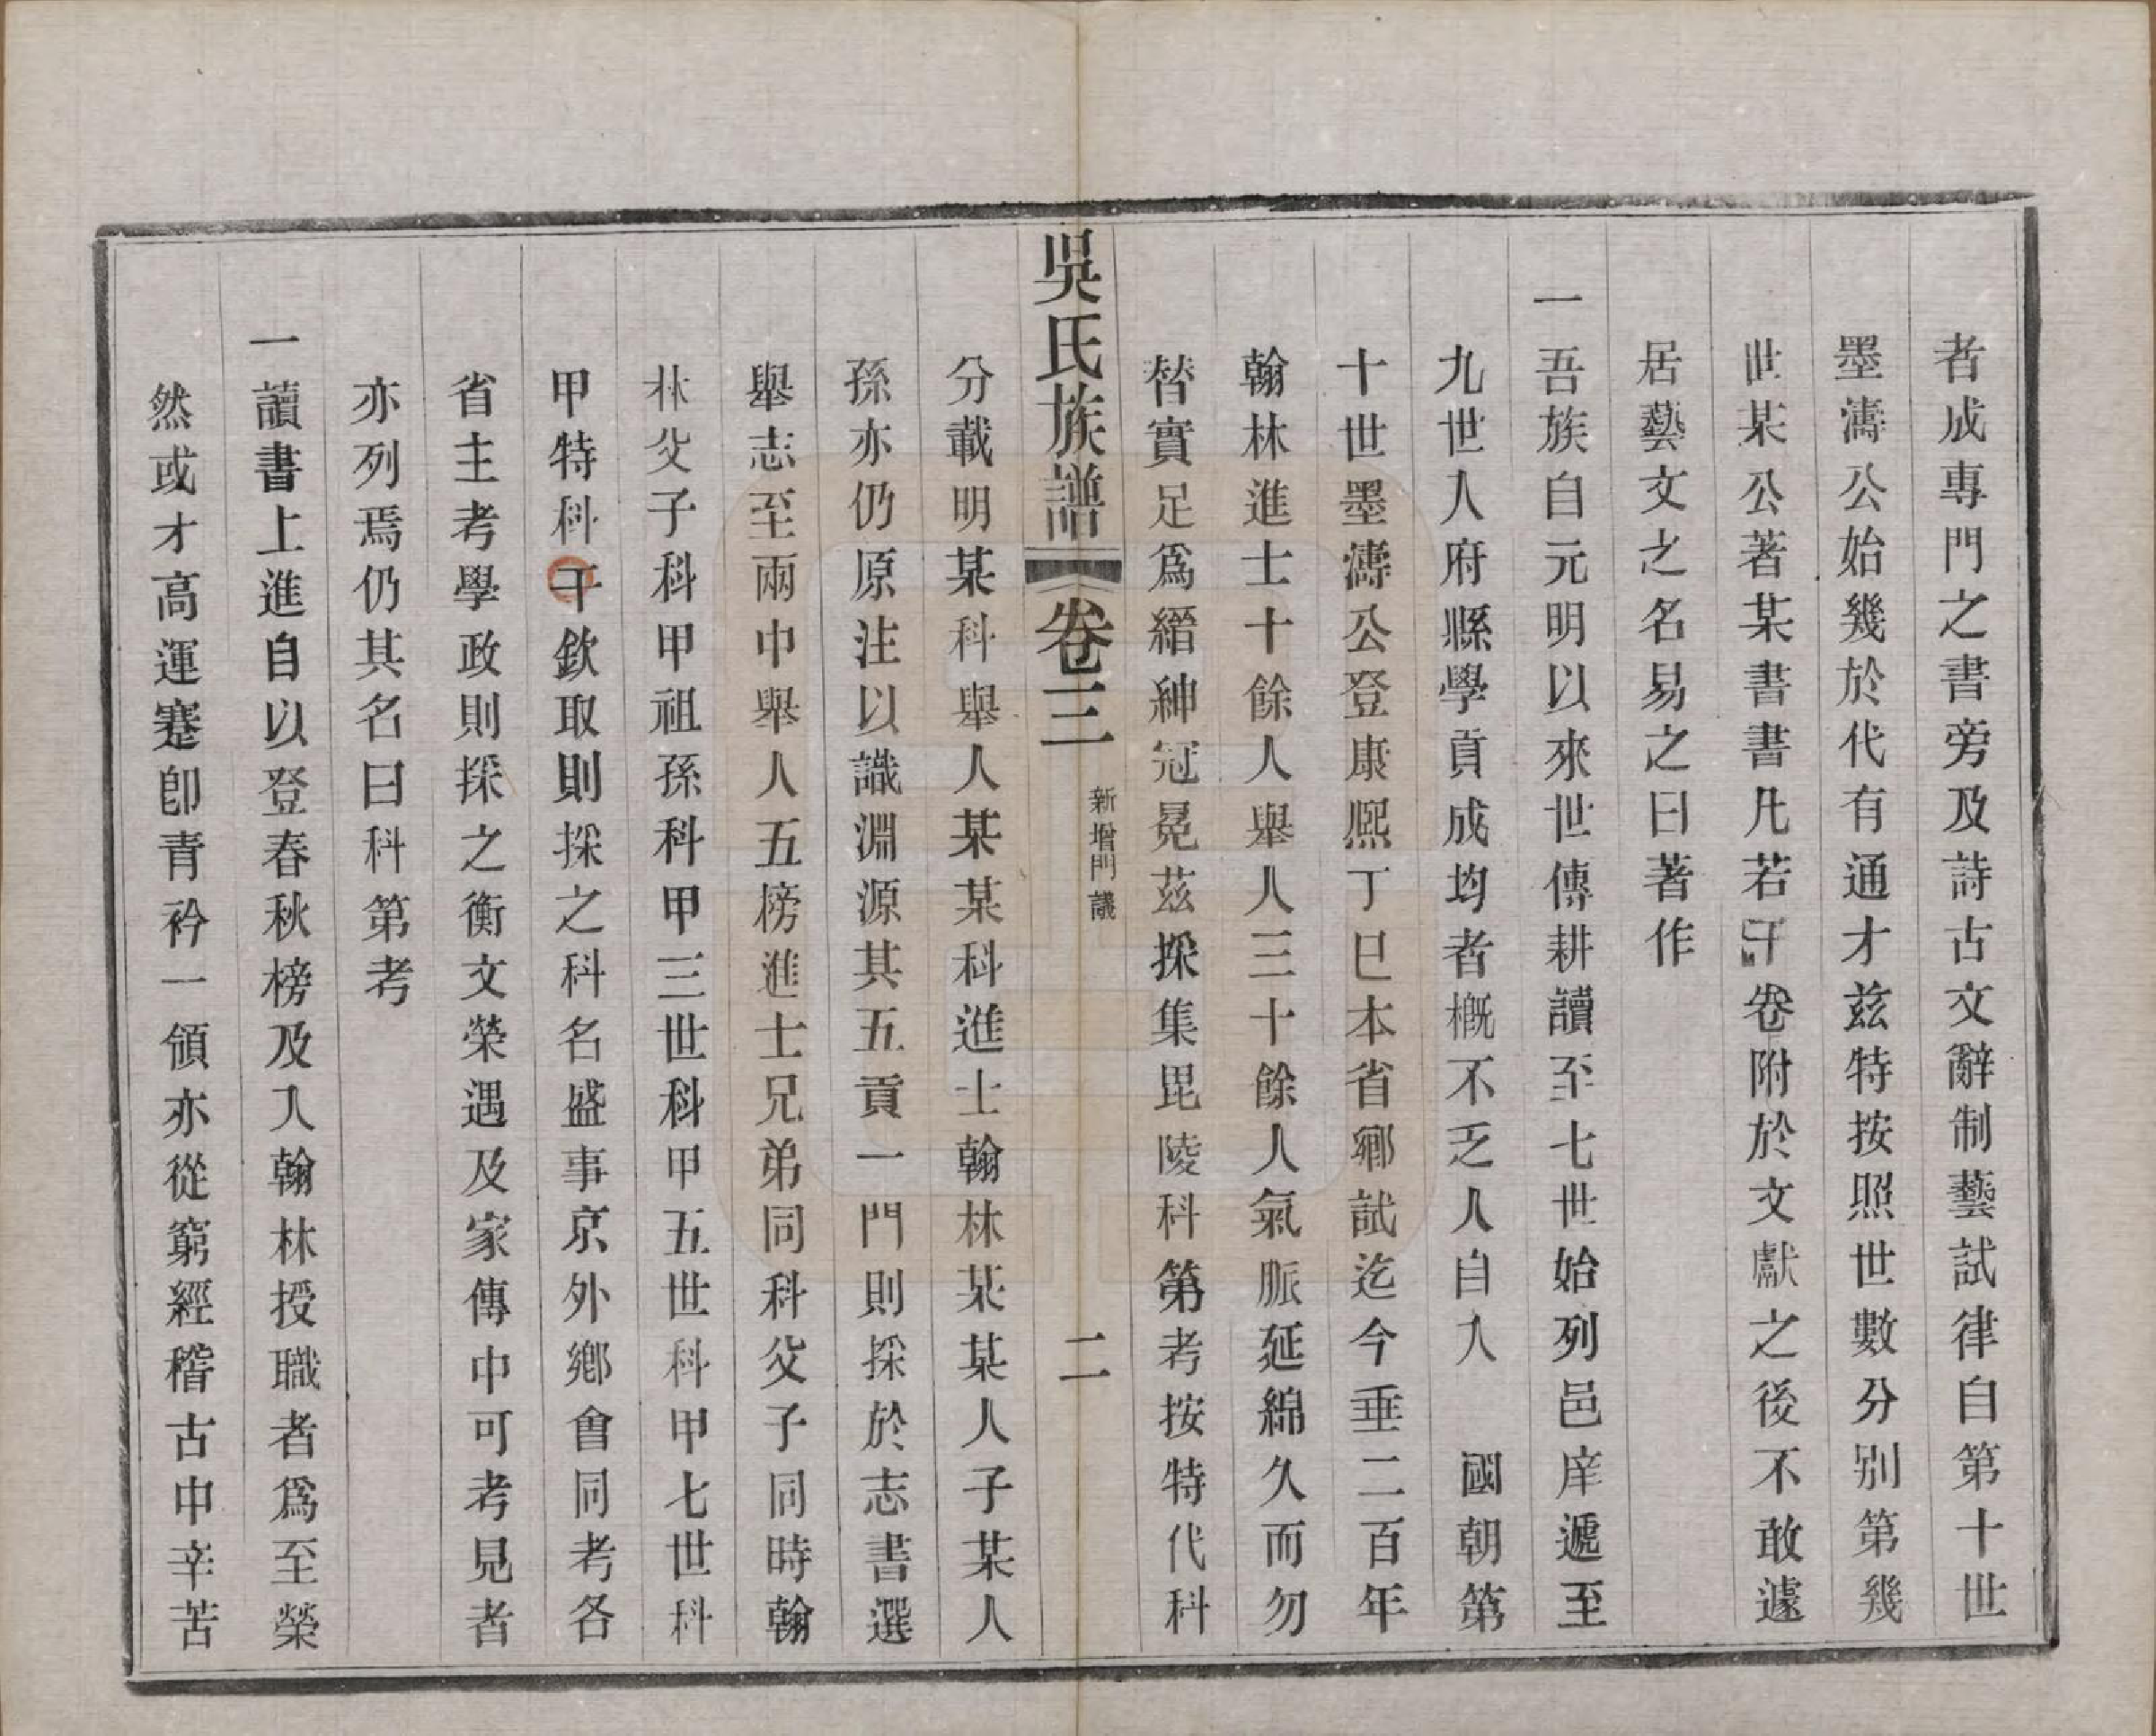 者成專門之書旁及詩古文辭制藝試律自第十世
墨濤公始幾於代有通才茲特按照世數分別第幾
世某公著某書書凡若干卷附於文獻之後不敢遽
居藝文之名易之曰著作
一吾族自元明以來世傳耕讀至七世始列邑庠遞至
九世人府縣學貢成均者槪不乏人自入　國朝第
十世墨濤公登康熙丁巳本省鄕試迄今垂二百年
翰林進士十餘人舉人三十餘人氣脈延綿久而勿
替實足爲縉紳冠冕茲採集毘陵科第考按特代科
吳氏族譜 卷三 新增門議 二
分載明某科舉人某某科進士翰林某某人子某人
孫亦仍原注以識淵源其五貢一門則採於志書選
舉志至兩中舉人五榜進士兄弟同科父子同時翰
林父子科甲祖孫科甲三世科甲五世科甲七世科
甲特科干欽取則採之科名盛事京外鄕會同考各
省主考學政則採之衡文榮遇及家傳中可考見者
亦列焉仍其名曰科第考
一讀書上進自以登春秋榜及入翰林授職者爲至榮
然或才高運蹇卽青衿一領亦從窮經稽古中辛苦